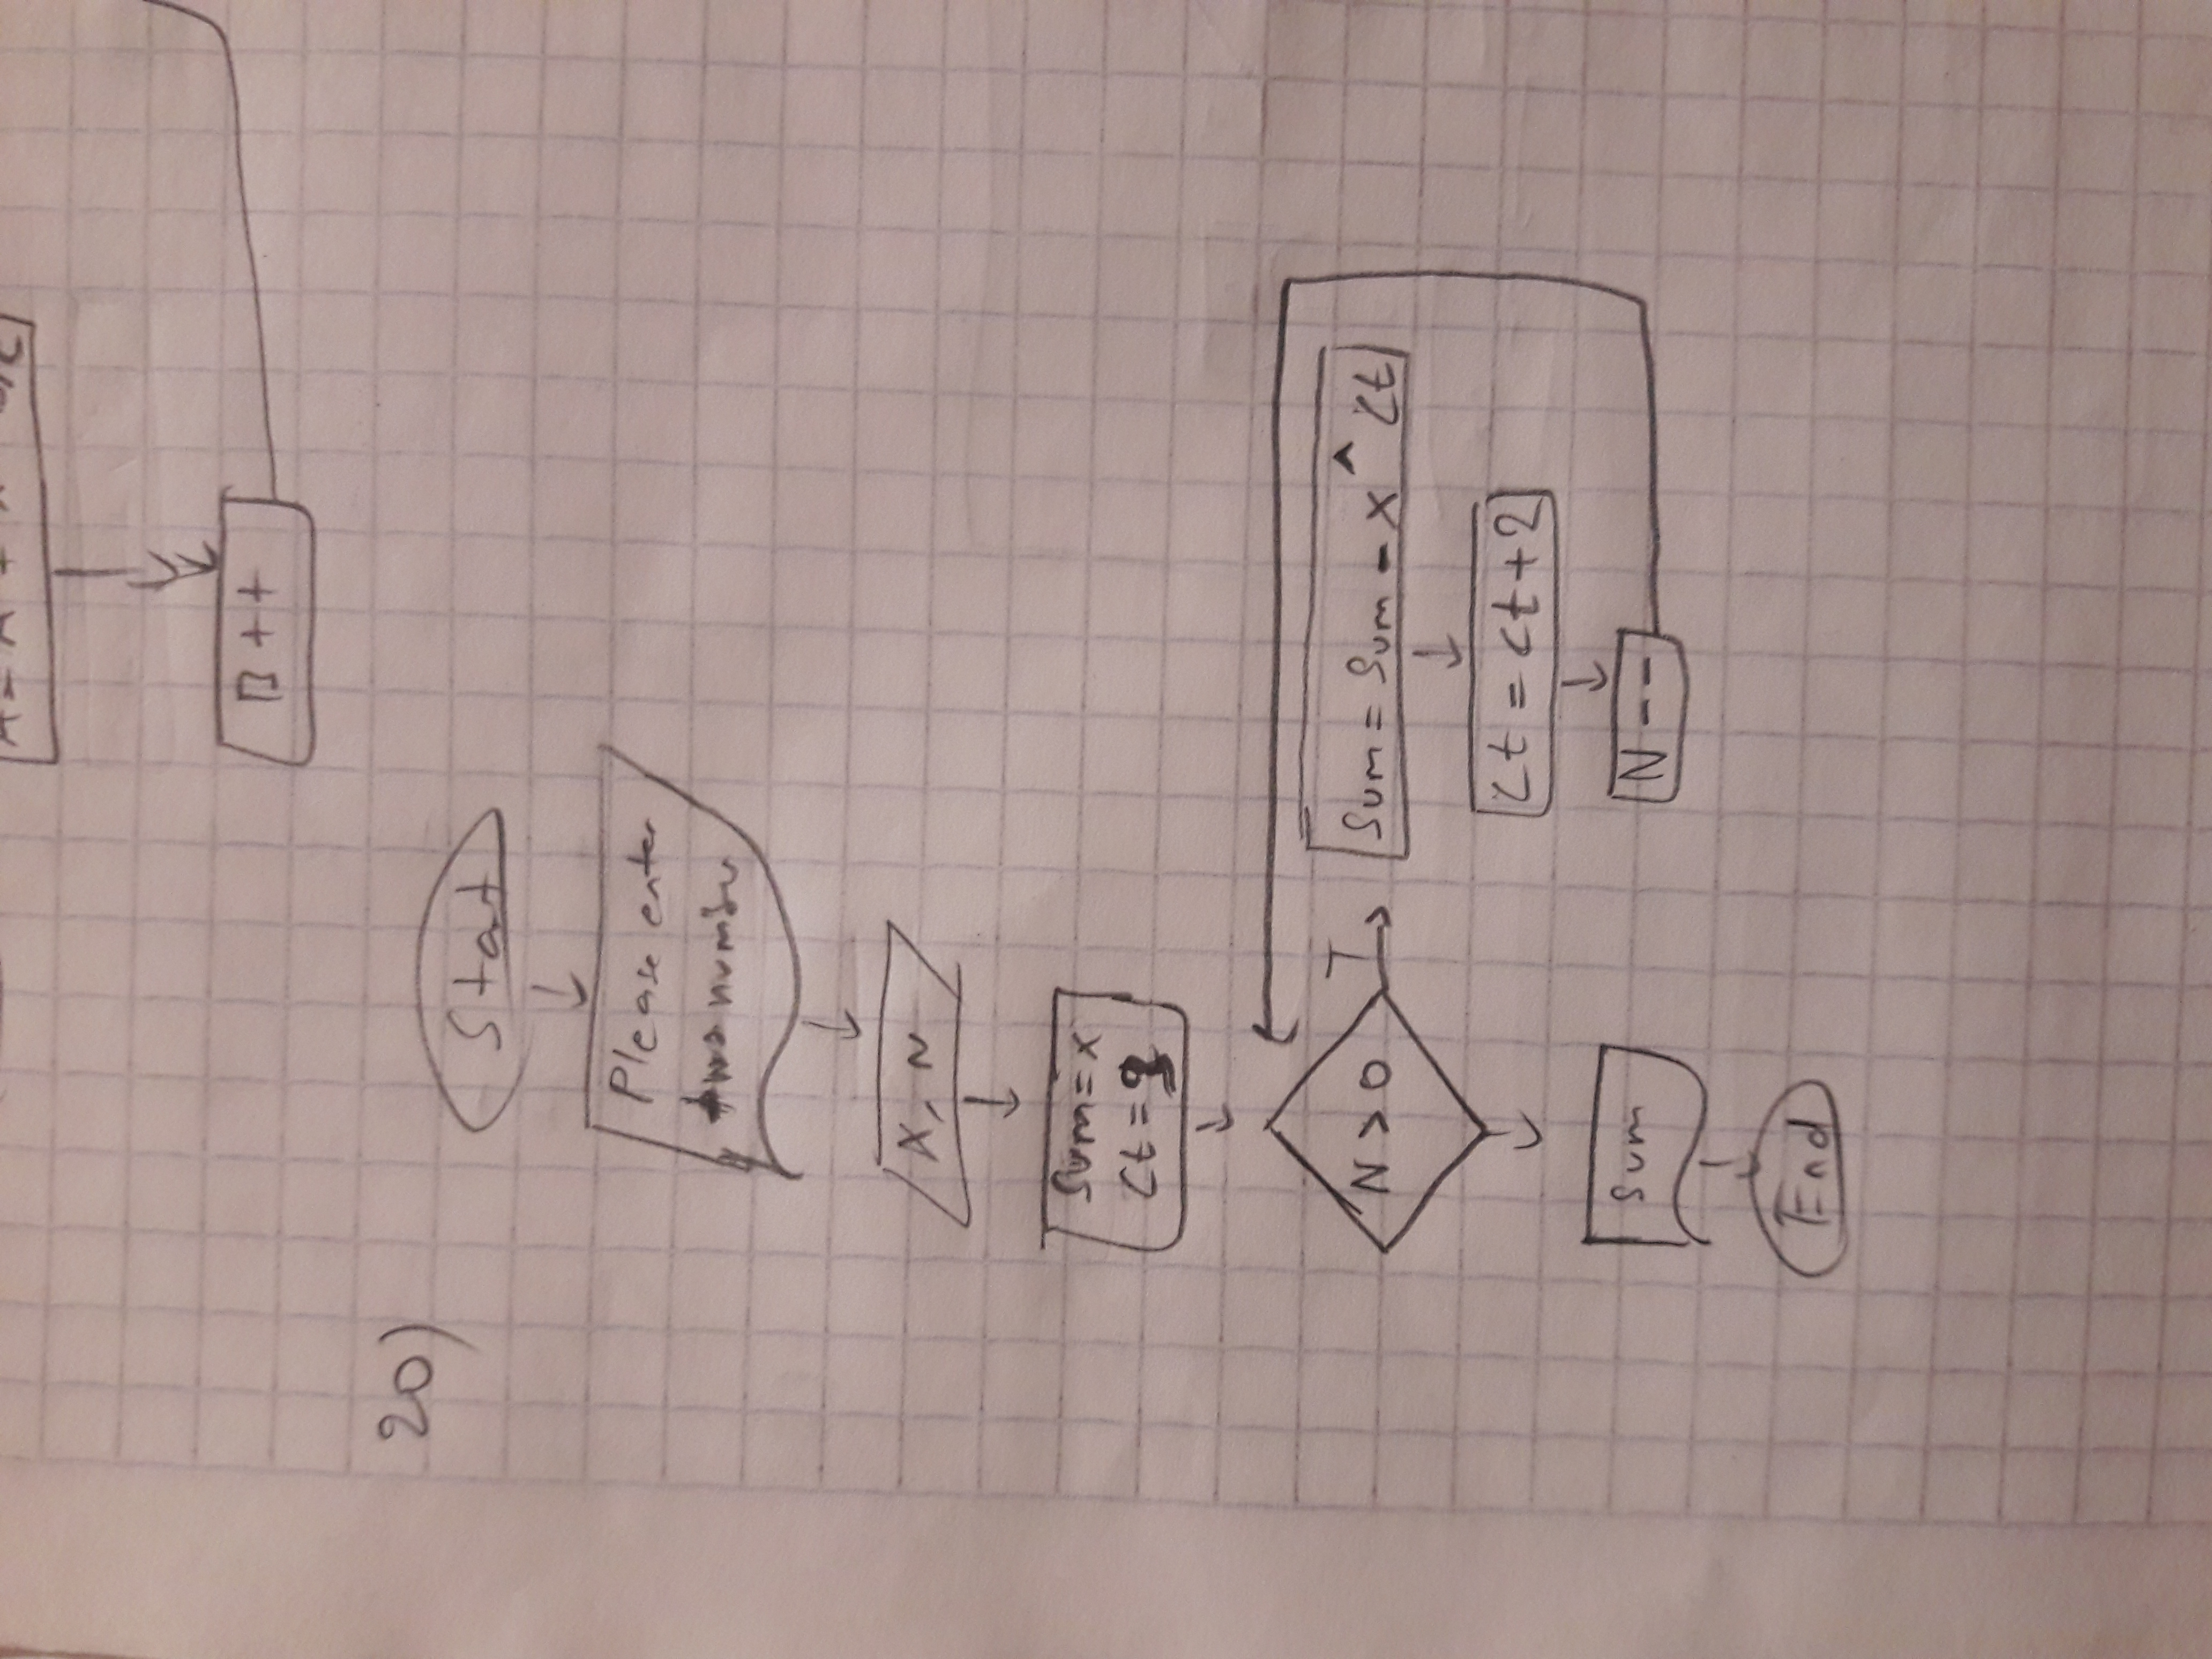 B++
20)
Start
Please enter
two number
X, N
Sum = x
Ct =
N > 0
T
Sum = Sum - x ^ Ct
Ct = Ct + 2
N --
Sum
End